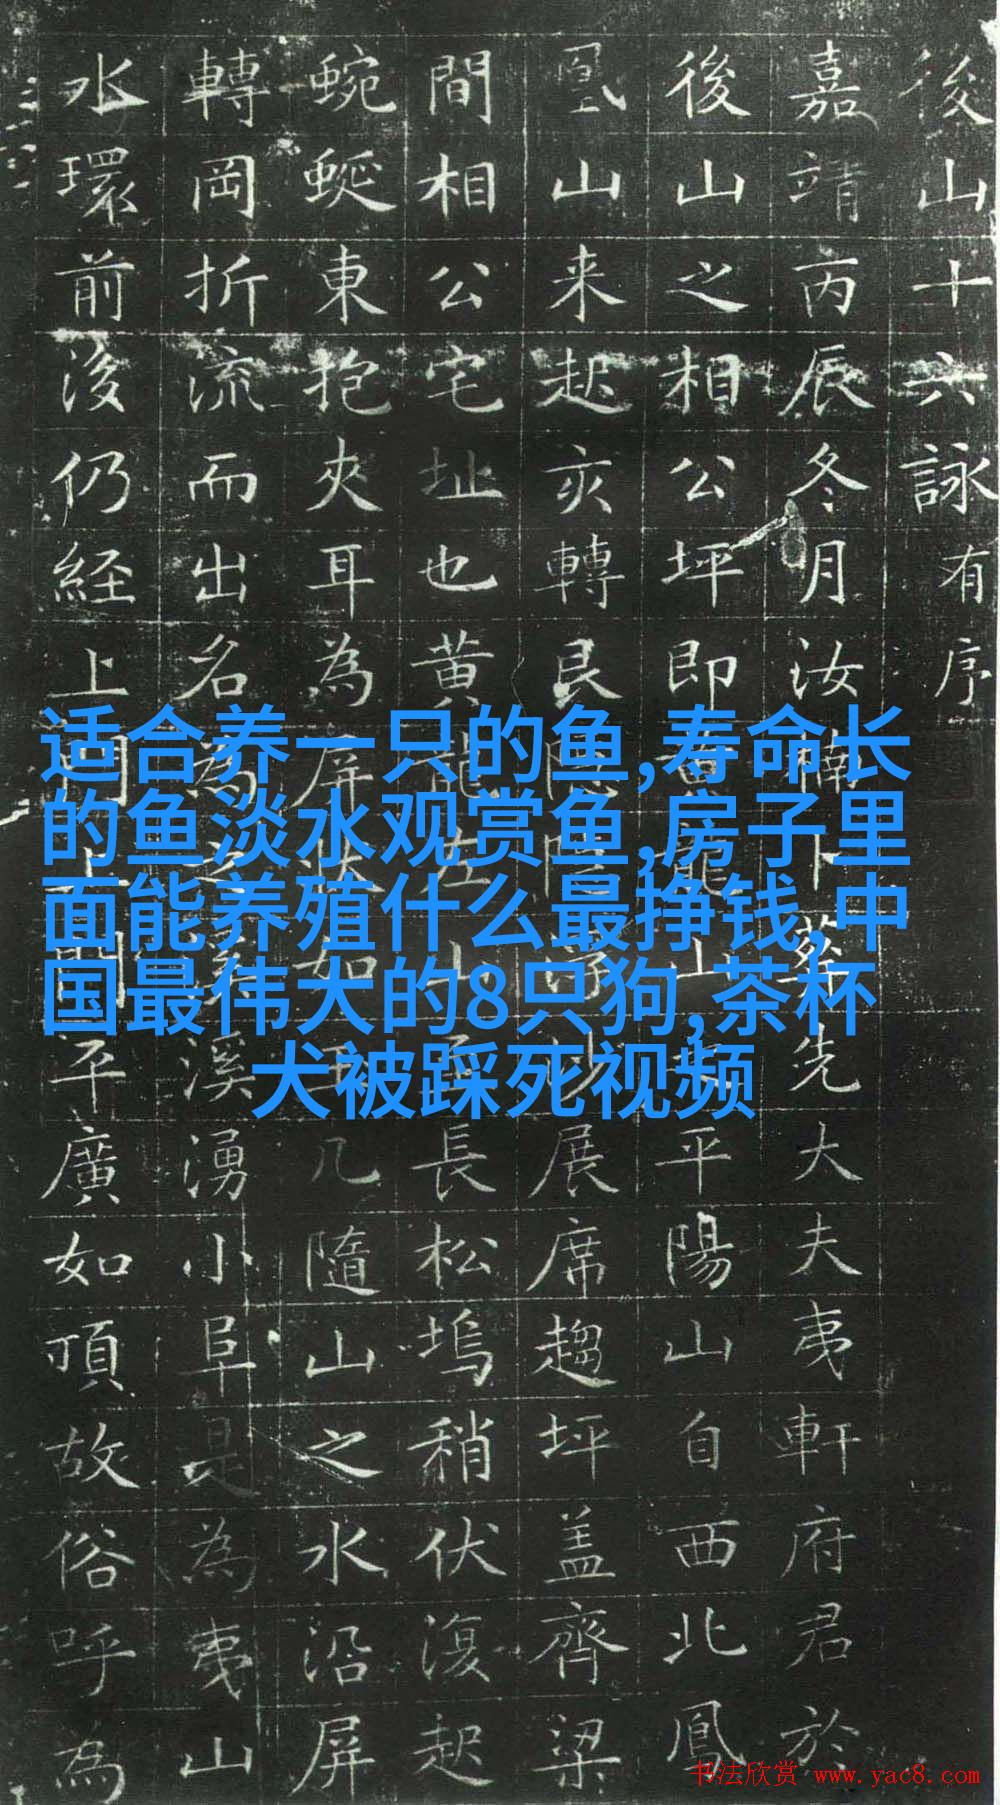 後山十六詠有序
嘉靖丙辰冬月汝楠卜葬先大夫夷軒府君於
後山之相公坪即黃龍山平陽山自西北鳳
凰山来起亥轉艮隠展席趨坪盖齊梁
間相公宅址也黄龍左山長松塢稍伏復起
蜿蜒東抱夾耳為屏如几隨山之水沿屏
轉岡折流而出名為溪湧小阜是為夷山
水環前後仍経上平廣如頂故俗呼為
适合养一只的鱼,寿命长
的鱼淡水观赏鱼,房子里
面能养殖什么最挣钱,中
国最伟大的8只狗,茶杯
犬被踩死视频
书法欣赏 www.yac8.com